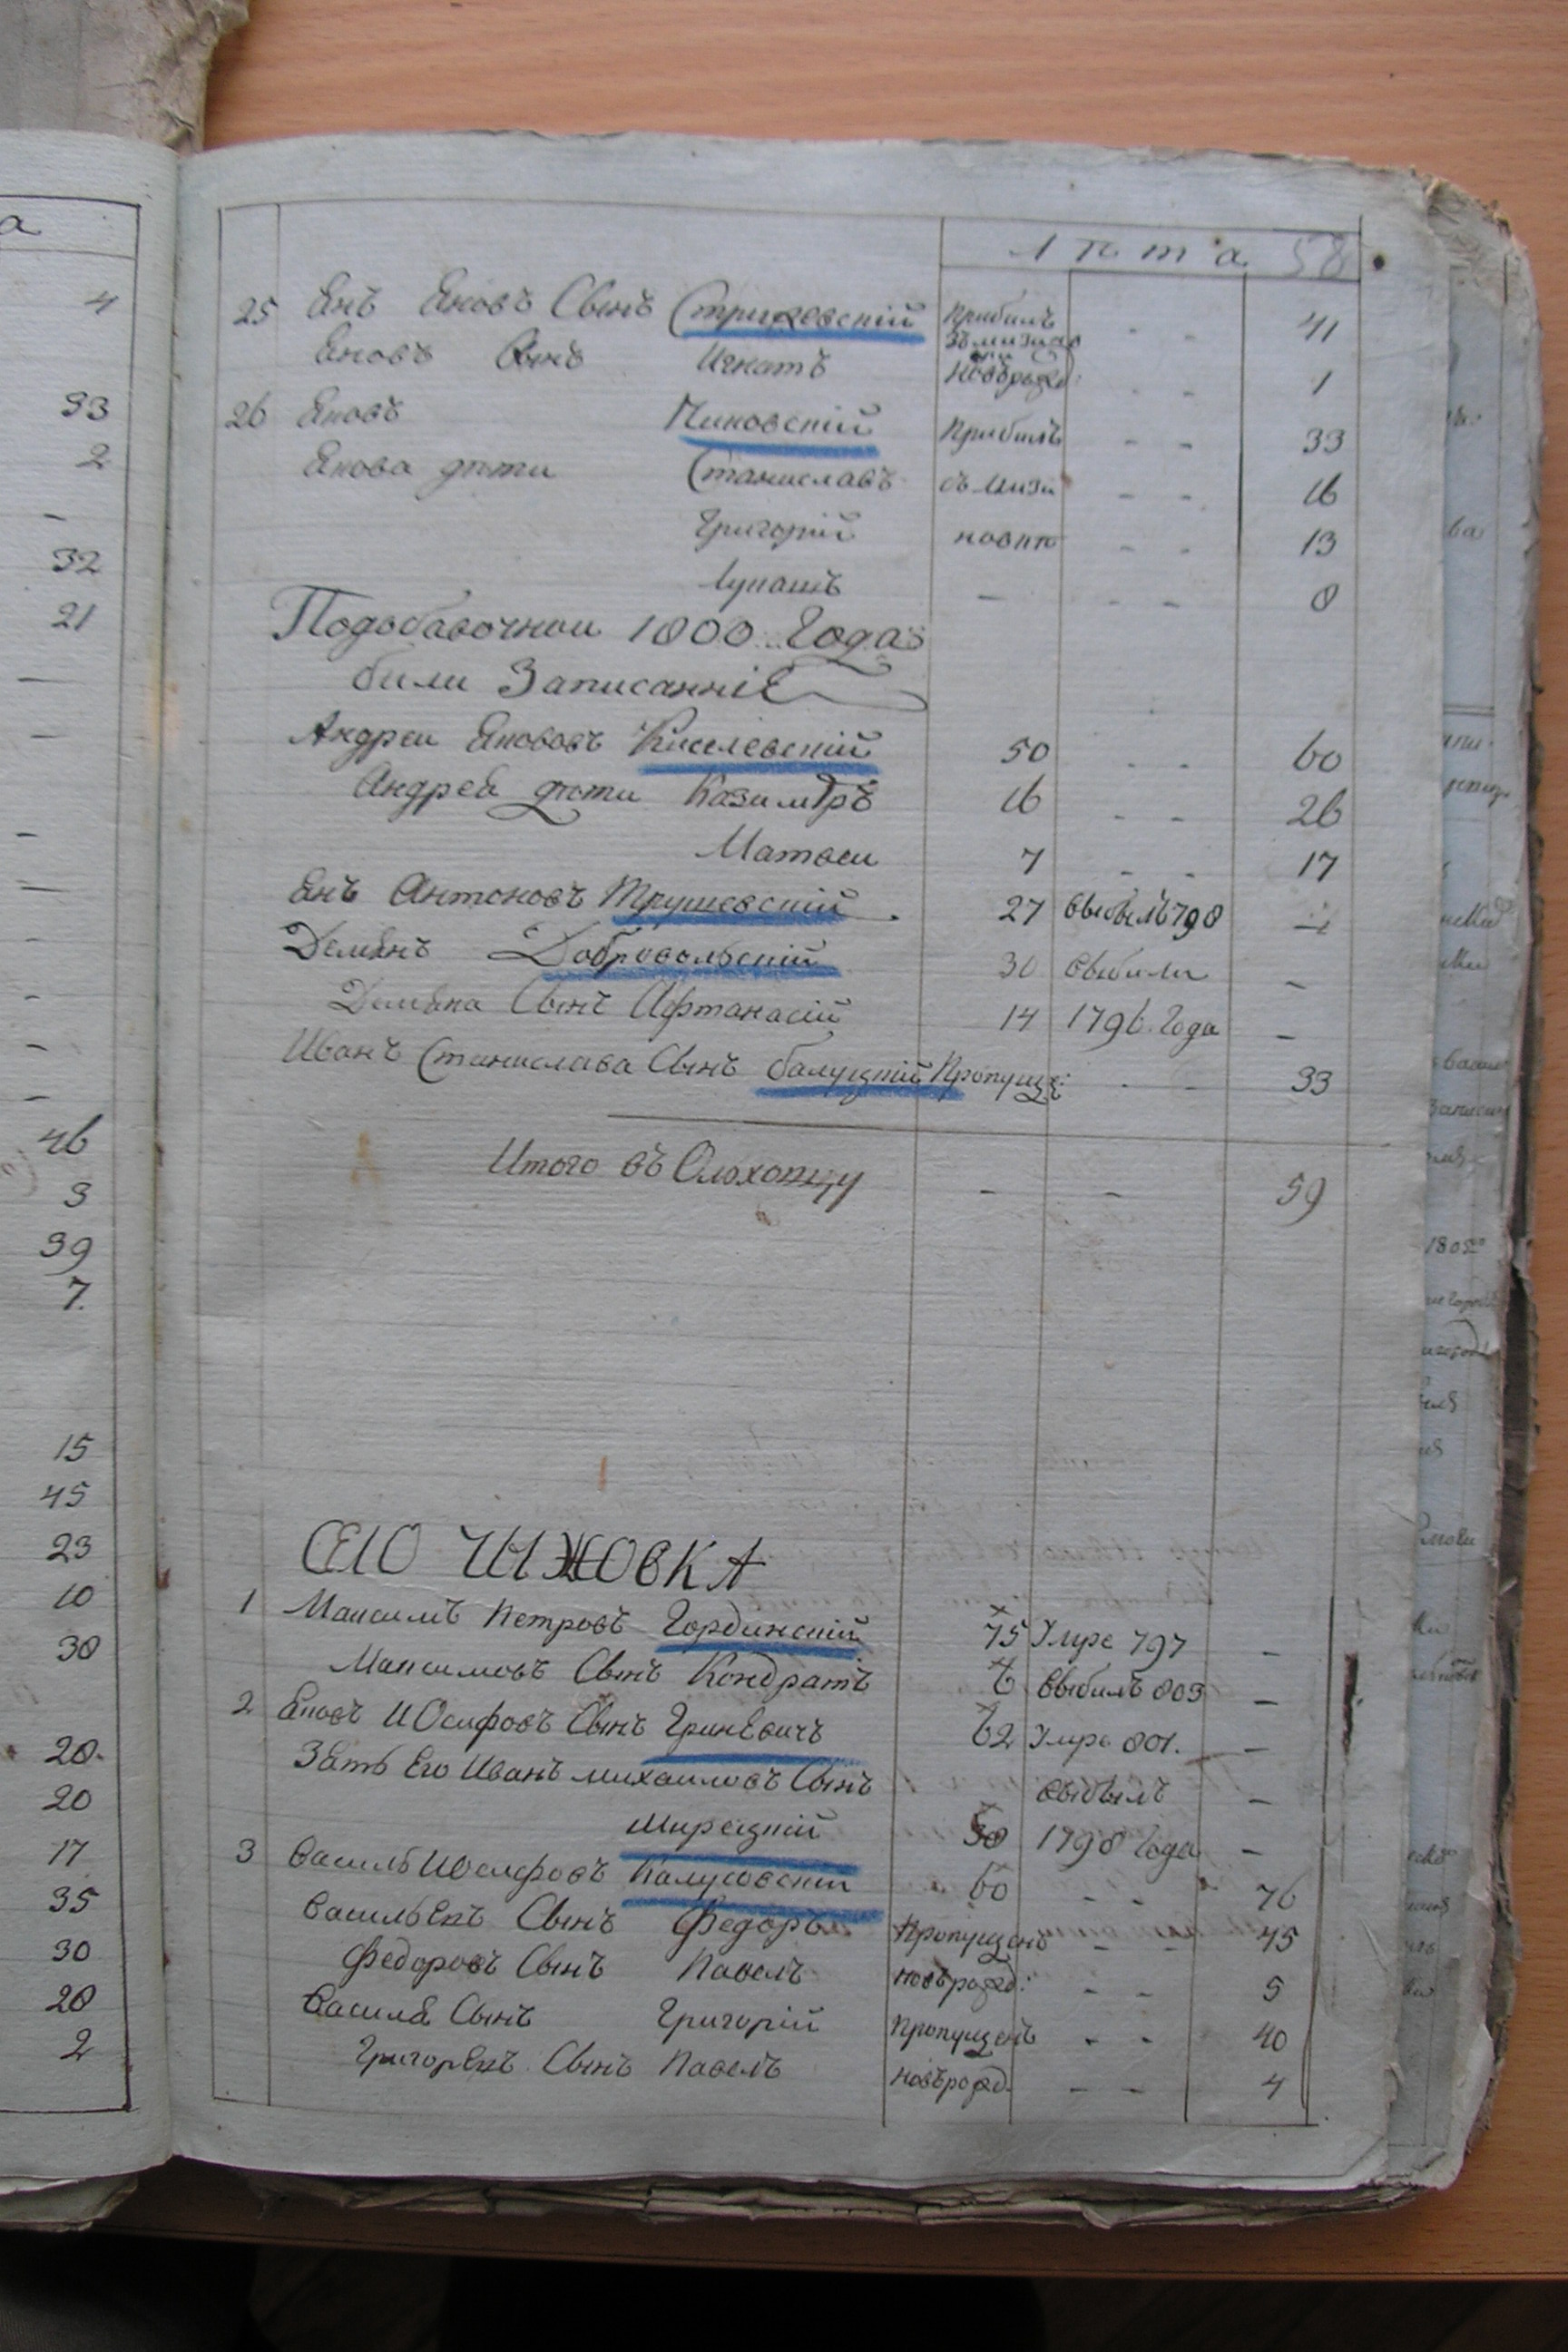 а
4
33
2
32
21
46
3
39
7.
15
45
23
10
30
20.
20
17
35
30
20
2
Лѣта 58
25 Янъ Яковъ Сынъ Стрижевскій Прибылъ 41
Яковъ Сынъ Игнатъ Новърожд: 1
26 Яковъ Чиковскій Прибылъ - - 33
Якова дѣти Станиславъ - - 16
Григорій - - 13
Лукашъ - - - 8
Подобавочнои 1800 Года
били Записанніе
Андреи Якововъ Киселевскій 50 - - 60
Андрея дѣти Казимѣръ 16 - - 26
Матвеи 7 - - 17
Янъ Антоновъ Трушевскій 27 выбылъ 798 -
Демянъ Добровольскій 30 выбили -
Демяна Сынъ Афтанасій 14 1796. Года -
Иванъ Станислава Сынъ балуцкій Пропущ: - - 33
Итого въ - - 59
СЕЛО ЧИЖОВКА
1 Максимъ Петровъ Гординскій 75 Умре 797 -
Максимовъ Сынъ Кондратъ 6 Выбилъ 803 -
2 Яковъ Иосифовъ Сынъ Гриневичъ 62 Умре 801. -
Зять Его Иванъ михаиловъ Сынъ выбылъ -
Мирецкій 30 1798 Года -
3 Василь Иосифовъ Калусовскій 60 - - 76
Васильевъ Сынъ Федоръ Пропущенъ - - 45
Федоровъ Сынъ Павелъ новърожд: - - 5
Василя Сынъ Григорій Пропущенъ - - 40
Григоревъ Сынъ Павелъ новърожд. - - 4